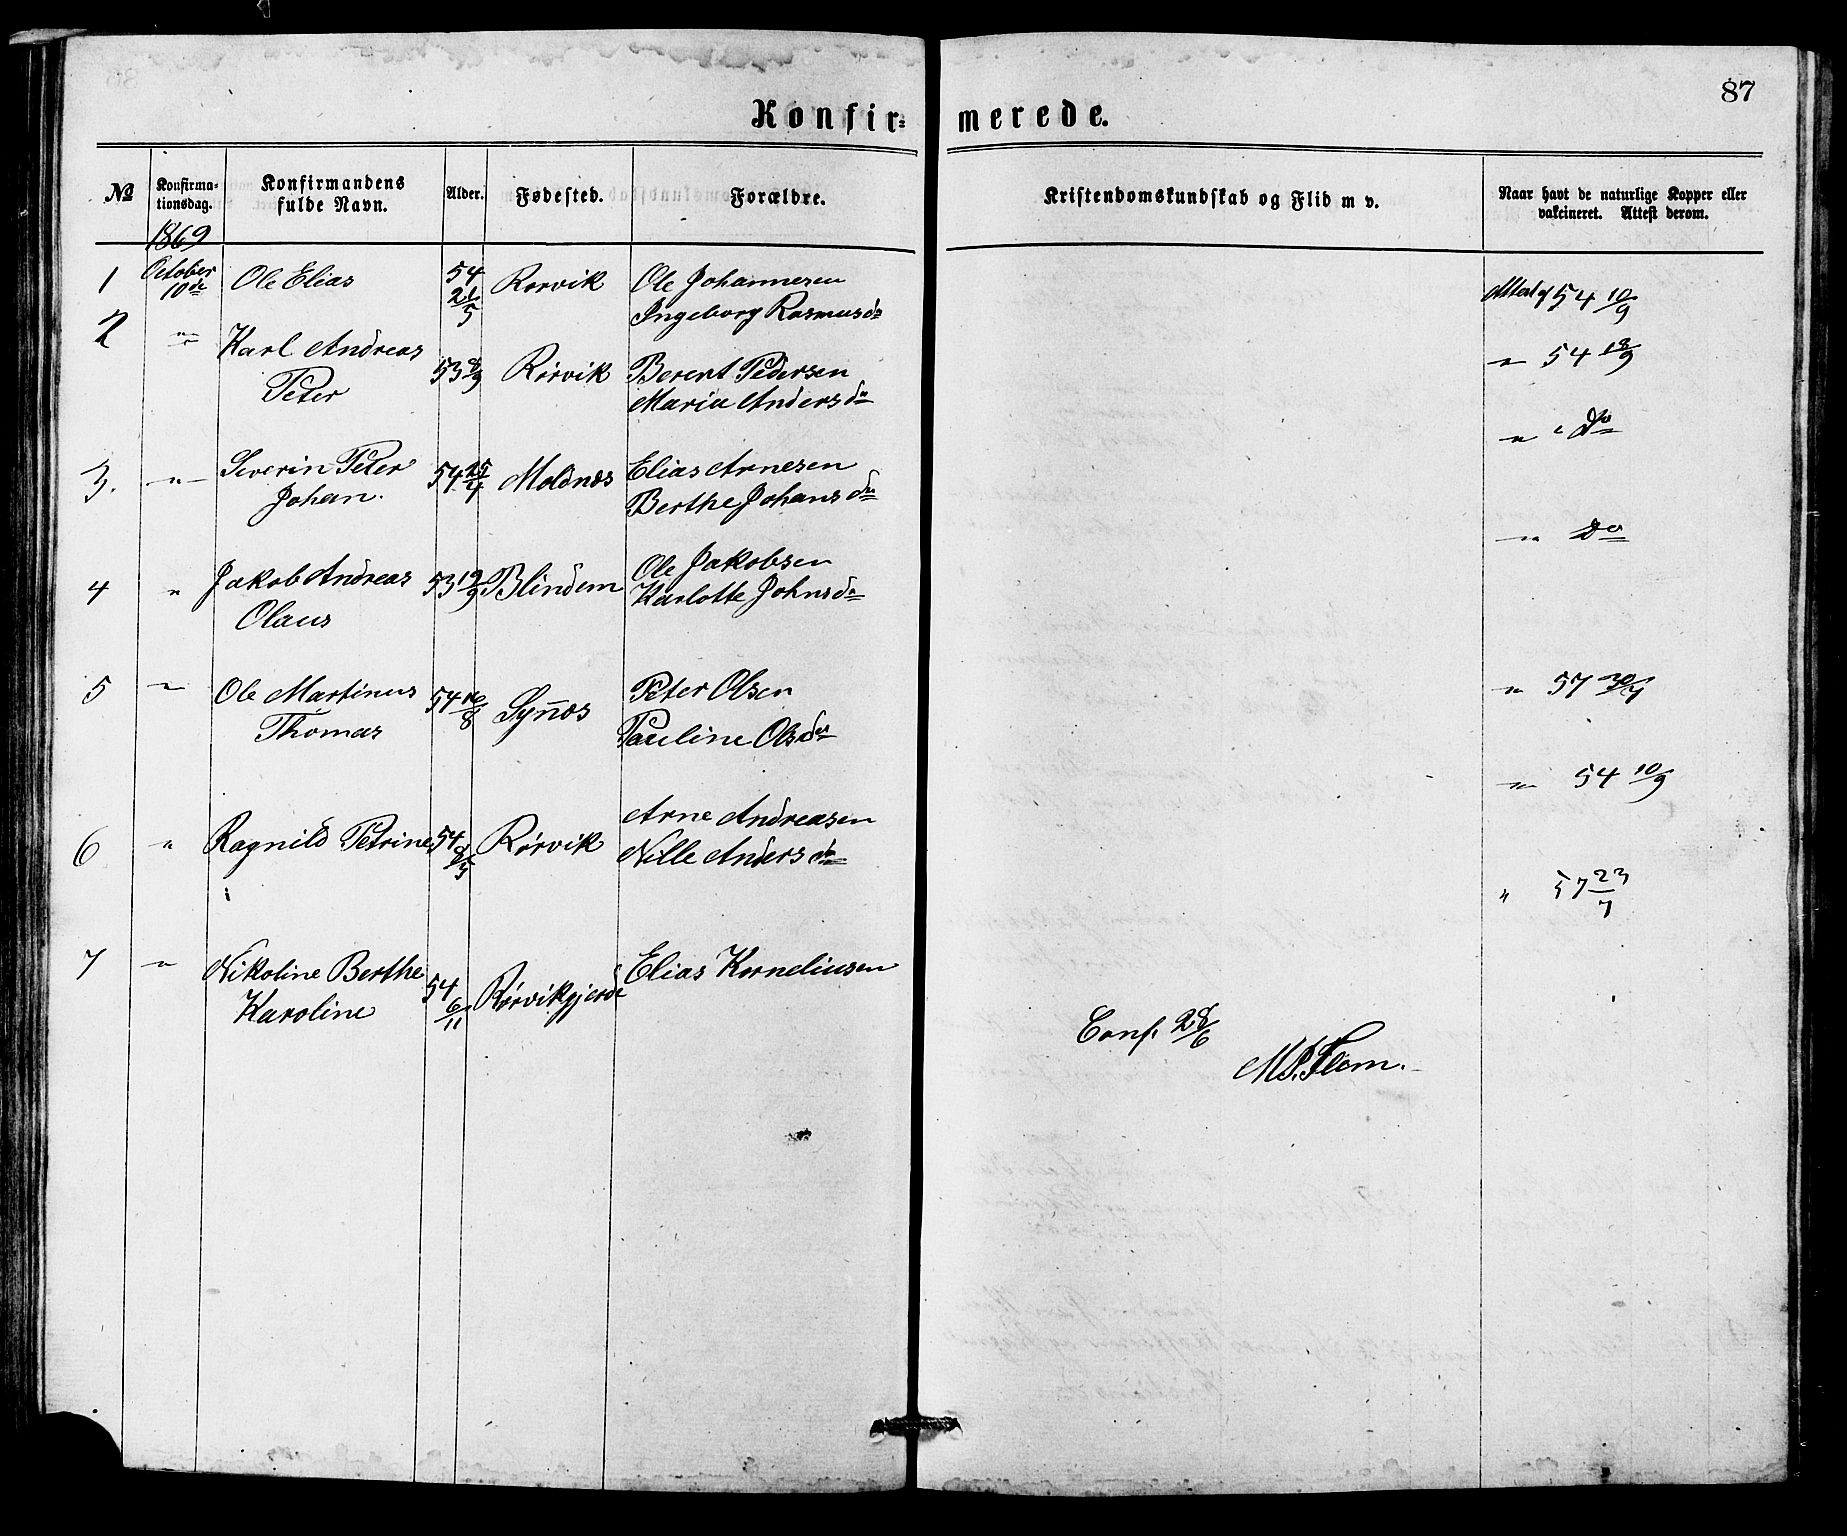 87
Konfir= merede.
No
Konfirma-
tionsdag.
Konfirmandens
fulde Navn.
Alder.
Fødested.
Forældre.
Kristendomskundskab og Flid m v.
Naar havt de naturlige Kopper eller
vakcineret. Attest derom.
1869
1 October 10de Ole Elias 54 21/5 Rørvik Ole Johannesen
Ingeborg Rasmusdr
54 10/9
2 " Karl Andreas
Peter 53 8/9 Rørvik Berent Pedersen
Maria Andersdr
" 54 18/9
3. " Severin Peter
Johan. 54 25/4 Moldnæs Elias Arnesen
Berthe Johansdr
" do
4 " Jakob Andreas
Olaus 53 19/9 Blindem Ole Jakobsen
Karlotte Johnsdr
" do
5 " Ole Martinus
Thomas 54 16/8 Synnæs Peter Olsen
Pauline Olsdr
" 57 20/7
6 " Ragnild Petrine 54 Rørvik Arne Andreasen
Nille Andersdr
" 54 10/9
7 " Nikoline Berthe
Karoline 54 6/11 Rørvikgjerde Elias Korneliusen
" 57 23/7
Conf. 28/6
M.P. Flem.